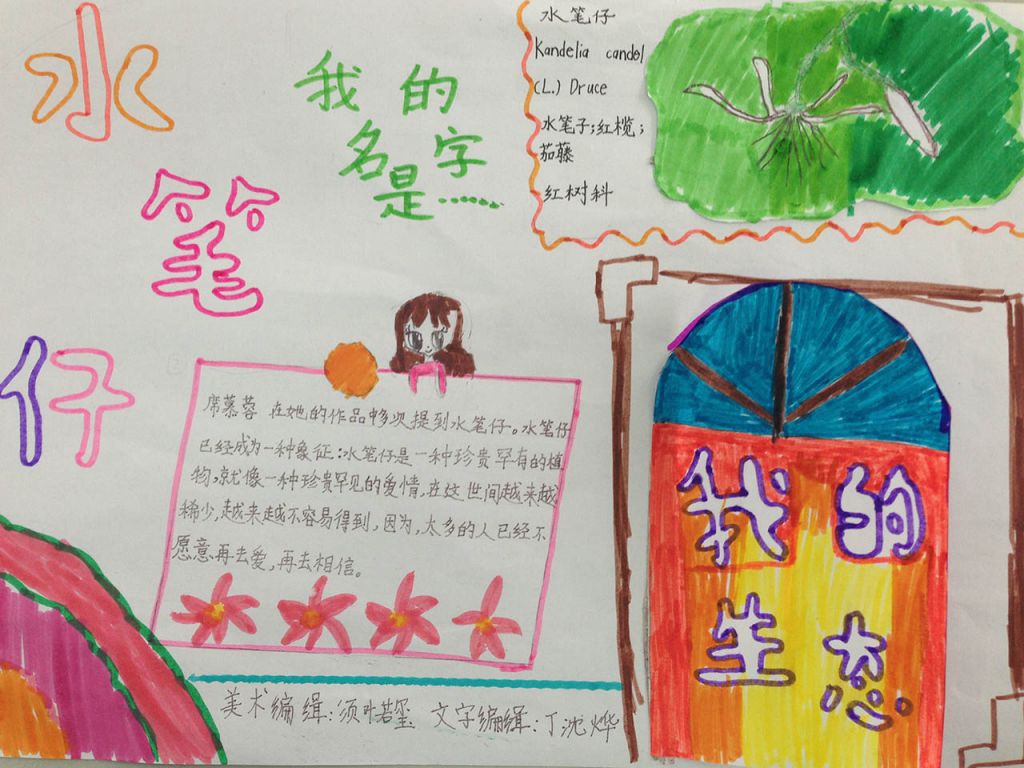 水笔仔
我的
名字
是……
水笔仔
Kandelia candel
(L.) Druce
水笔子;红榄;
茄藤
红树科
席慕蓉 在她的作品中多次提到水笔仔。水笔仔
已经成为一种象征:水笔仔是一种珍贵罕有的植
物,就像一种珍贵罕见的爱情,在这世间越来越
稀少,越来越不容易得到,因为,太多的人已经不
愿意再去爱,再去相信。
我的
生态
美术编缉:须叶若玺 文字编缉:丁沈烨